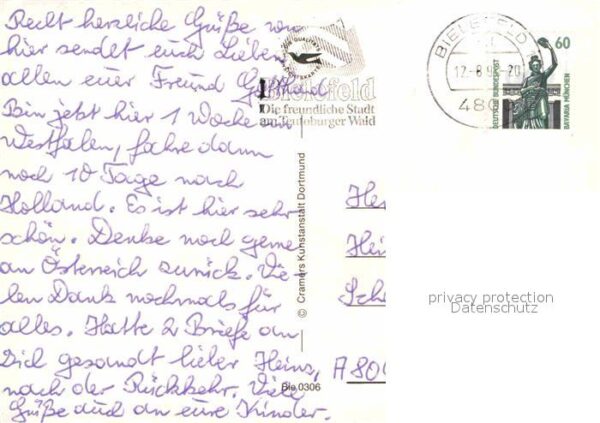 Recht herzliche Grüße von
hier sendet euch Lieben
allen euer Freund
Bin jetzt hier 1 Woche in
Westfalen, fahre dann
noch 10 Tage nach
Holland. Es ist hier sehr
schön. Denke noch gerne
an Österreich zurück. Vie-
len Dank nochmals für
alles. Hatte 2 Briefe an
Dich gesandt lieber Heins,
nach der Rückkehr. Viele
Grüße auch an eure Kinder.
Bielefeld
Die freundliche Stadt
am Teutoburger Wald
BIELEFELD
12.-8.9 -20
480
60
DEUTSCHE BUNDESPOST
BAVARIA MÜNCHEN
© Cramers Kunstanstalt Dortmund
Bie 0306
He
Hei
Sch
A 80
privacy protection
Datenschutz